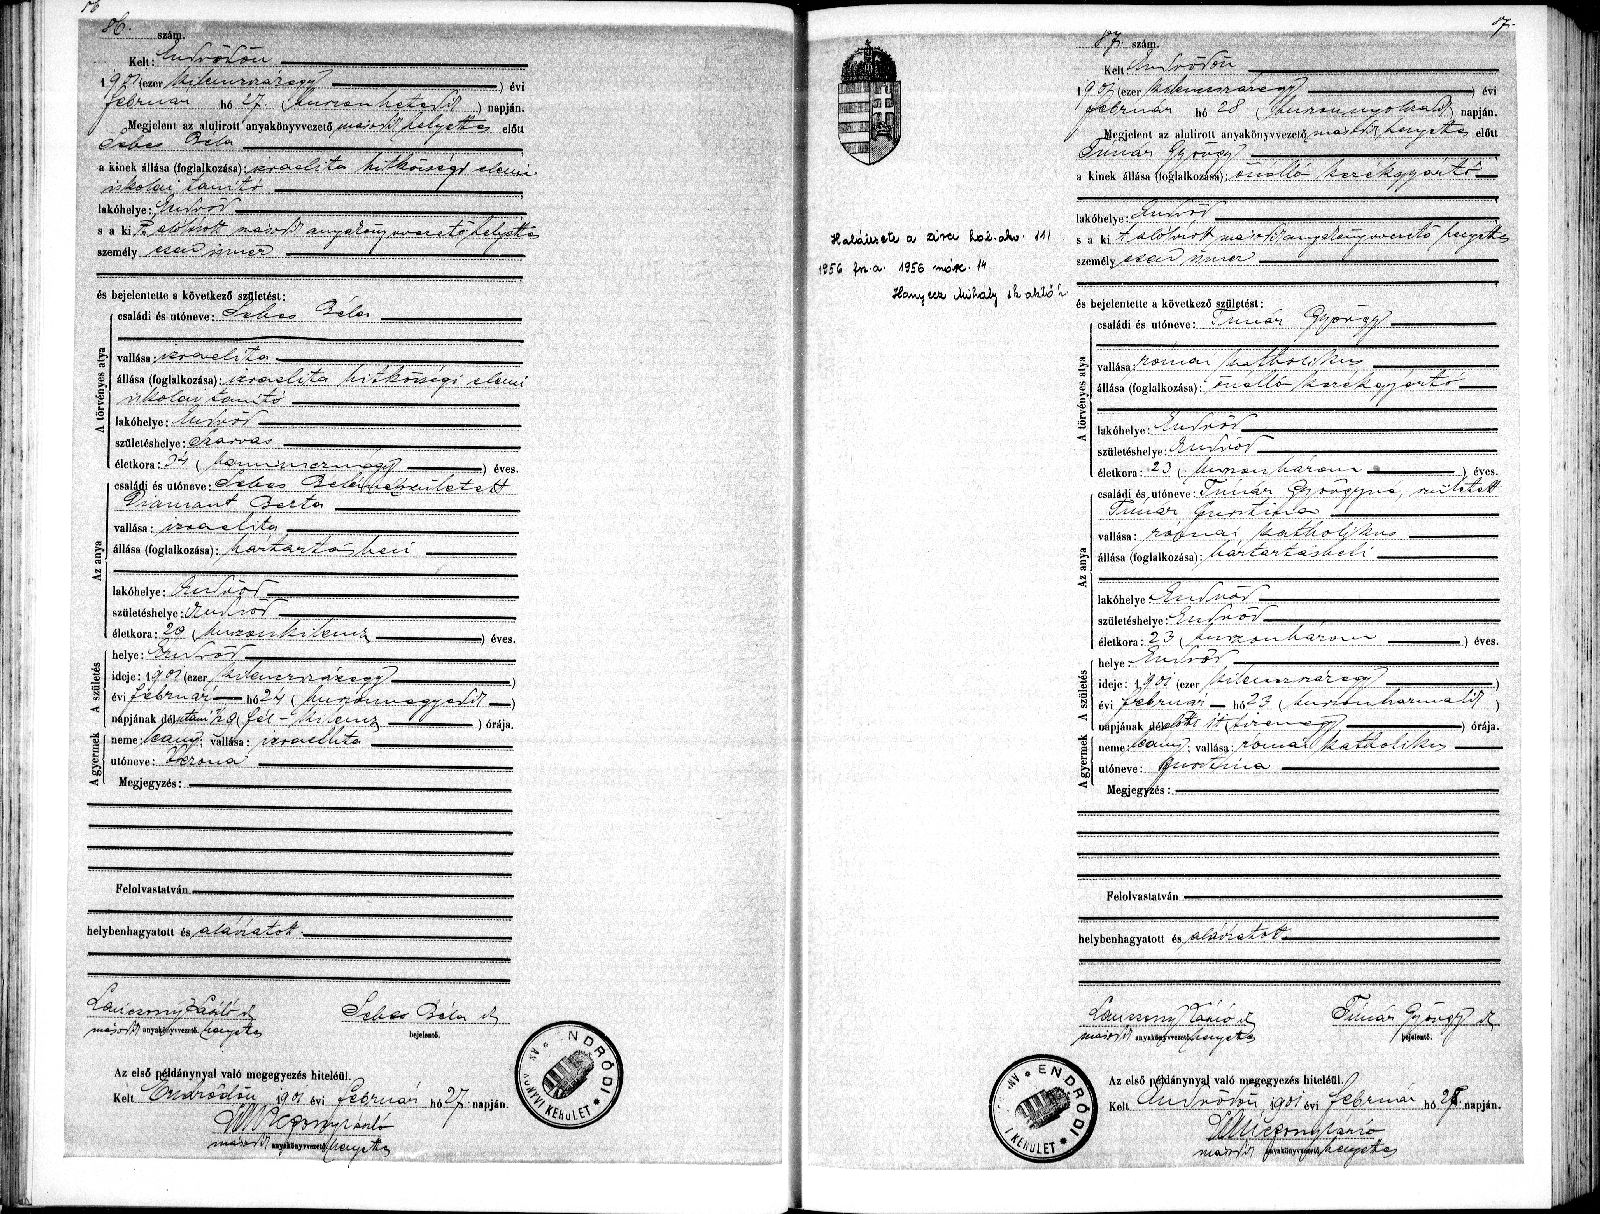 86. szám.
Kelt: Endrődön
1901 (ezer kilenczszázegy) évi
február hó 27. (huszonhetedik) napján.
Megjelent az alulirott anyakönyvvezető másodh. helyettes előtt
Sebes Béla
a kinek állása (foglalkozása): izraelita hitközségi elemi
iskolai tanító
lakóhelye: Endrőd
s a kit alólirott másodh. anyakönyvvezető helyettes
személy esen ismer
és bejelentette a következő születést:
A törvényes atya
családi és utóneve: Sebes Béla
vallása: izraelita
állása (foglalkozása): izraelita hitközségi elemi
iskolai tanító
lakóhelye: Endrőd
születéshelye: Szarvas
életkora: 34 (harmincznégy) éves.
Az anya
családi és utóneve: Sebes Béláné született
Diamant Berta
vallása: izraelita
állása (foglalkozása): háztartásbeli
lakóhelye: Endrőd
születéshelye: Endrőd
életkora: 29 (huszonkilencz) éves.
A születés
helye: Endrőd
ideje: 1901 (ezer kilenczszázegy)
évi február hó 24 (huszonnegyedik)
napjának délutáni ½9 (fél-kilencz) órája.
A gyermek
neme: leány; vallása: izraelita
utóneve: Ilona
Megjegyzés:
Felolvastatván
helybenhagyatott és aláiratott.
László
másodh. anyakönyvvezető helyettes
Sebes Béla
bejelentő.
Az első példánynyal való megegyezés hiteléül.
Kelt Endrődön 1901 évi február hó 27 napján.
másodh. anyakönyvvezető helyettes
NDRŐDI
KÖNYVI KERÜLET
Halálesete a hal. akv. 111
1956 fn.a. 1956 márc. 14
Hanyecz Mihály sk
87.
87. szám.
Kelt: Endrődön
1901 (ezer kilenczszázegy) évi
február hó 28 (huszonnyolczadik) napján.
Megjelent az alulirott anyakönyvvezető másodh. helyettes előtt
Timár György
a kinek állása (foglalkozása): önálló kerékgyártó
lakóhelye: Endrőd
s a kit alólirott másodh. anyakönyvvezető helyettes
személy esen ismer
és bejelentette a következő születést:
A törvényes atya
családi és utóneve: Timár György
vallása: római katholikus
állása (foglalkozása): önálló kerékgyártó
lakóhelye: Endrőd
születéshelye: Endrőd
életkora: 23 (huszonhárom) éves.
Az anya
családi és utóneve: Timár Györgyné, született
Timár Jusztina
vallása: római katholikus
állása (foglalkozása): háztartásbeli
lakóhelye: Endrőd
születéshelye: Endrőd
életkora: 23 (huszonhárom) éves.
A születés
helye: Endrőd
ideje: 1901 (ezer kilenczszázegy)
évi február hó 23 (huszonharmadik)
napjának délelőtti 11 (tizenegy) órája.
A gyermek
neme: leány; vallása: római katholikus
utóneve: Jusztina
Megjegyzés:
Felolvastatván
helybenhagyatott és aláiratott
László
másodh. anyakönyvvezető helyettes
Timár György
bejelentő.
Az első példánynyal való megegyezés hiteléül.
Kelt Endrődön 1901 évi február hó 28 napján.
másodh. anyakönyvvezető helyettes
ENDRŐDI
I KERÜLET